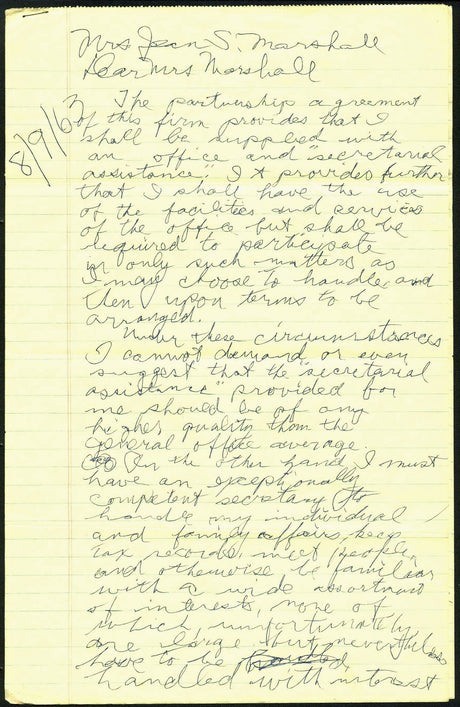 Mrs Jean S. Marshall
Dear Mrs Marshall
8/9/63
The partnership agreement
of this firm provides that I
shall be supplied with
an office and "secretarial
assistance". It provides further
that I shall have the use
of the facilities and services
of the office but shall be
required to participate
in only such matters as
I may choose to handle, and
then upon terms to be
arranged.
Under these circumstances
I cannot demand or even
suggest that the "secretarial
assistance" provided for
me should be of any
higher quality than the
general office average.
On the other hand, I must
have an exceptionally
competent secretary to
handle my individual
and family affairs, keep
tax records, meet people,
and otherwise be familiar
with a wide assortment
of interests, none of
which unfortunately
are large but nevertheless
have to be
handled with interest